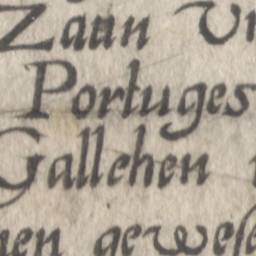 Zaan
Portuges
Gallehen
gewese